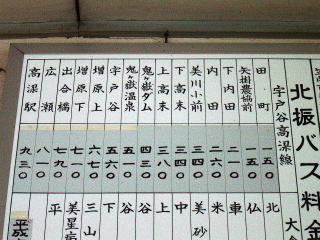 北振バス料金
宇戸谷高梁線
田町 一五〇
矢掛農協前 一五〇
下内田 二一〇
内田 二六〇
美川小前 三四〇
下高末 三四〇
上高末 三八〇
鬼ヶ嶽ダム 四三〇
鬼ヶ嶽温泉
宇戸谷 五六〇
増原上 六七〇
増原下
出合橋 七九〇
広瀬 八一〇
高梁駅 九三〇
北
仏
車
米
美砂
中
上
谷
谷
下
三山
美星病
平
平成